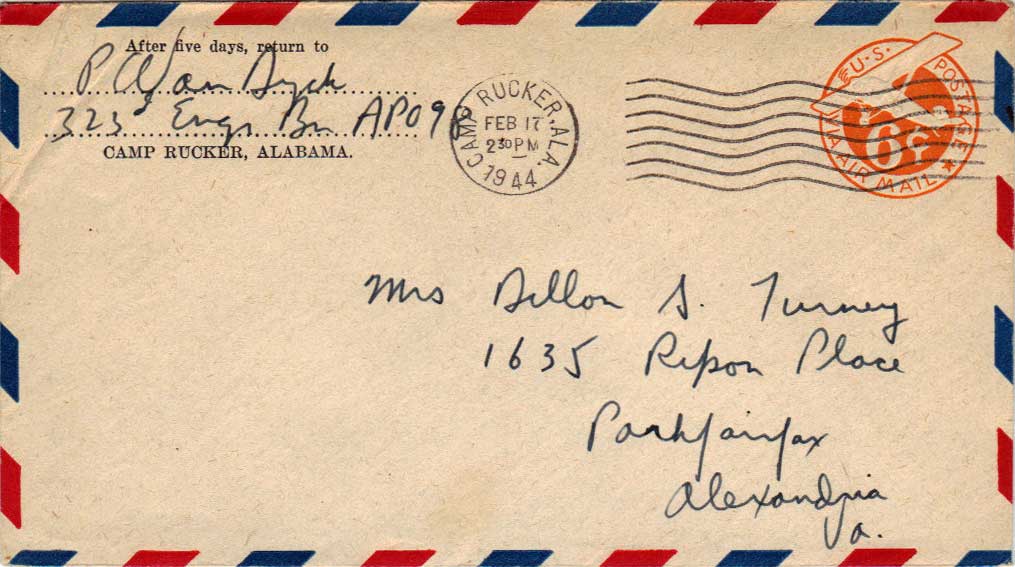 After five days, return to
P Van Dyck
323d Engr Bn APO 98
CAMP RUCKER, ALABAMA.
CAMP RUCKER, ALA.
FEB 17
2 30 PM
1944
U.S. POSTAGE
6¢
VIA AIR MAIL
Mrs Dillon S. Turney
1635 Ripon Place
Parkfairfax
Alexandria
Va.